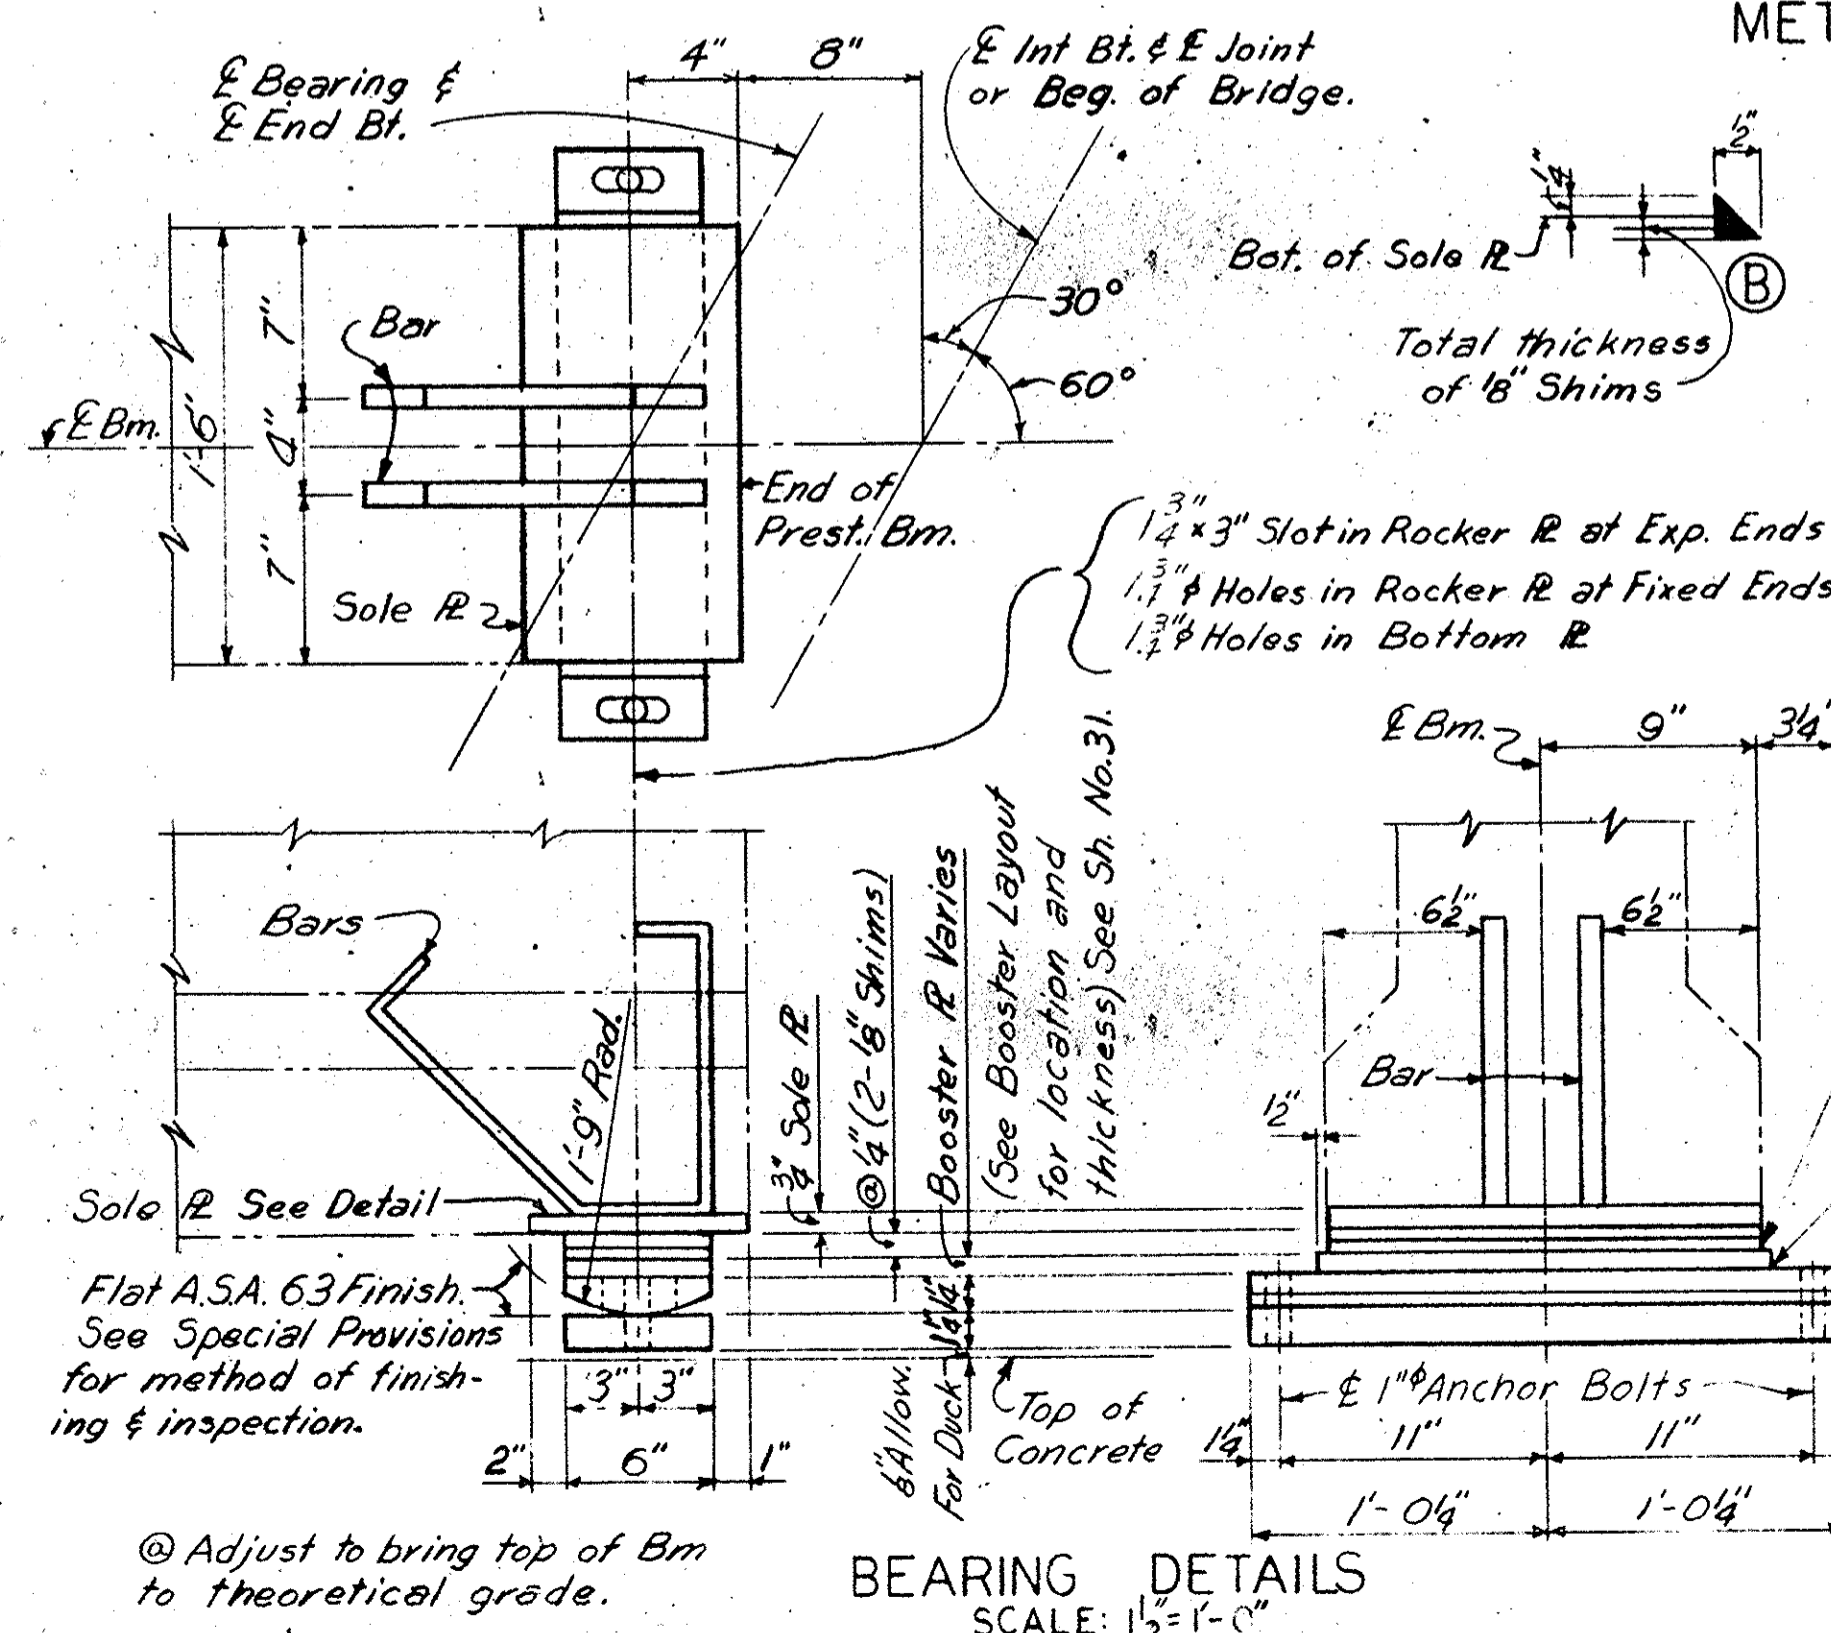 MET
4"
8"
℄ Bearing &
℄ End Bt.
℄ Int Bt. & ℄ Joint
or Beg. of Bridge.
1/2"
1/4"
Bot. of Sole PL
B
Total thickness
of 1/8" Shims
30°
60°
7"
Bar
℄ Bm.
1'-6"
4"
7"
End of
Prest. Bm.
Sole PL
1 3/4" x 3" Slot in Rocker PL at Exp. Ends
Holes in Rocker PL at Fixed Ends
Holes in Bottom PL
℄ Bm.
9"
3 1/4"
Bars
1'-9" Rad.
3/4" Sole PL
@ 1/4" (2-1/8" Shims)
Booster PL Varies
(See Booster Layout
for location and
thickness) See Sh. No. 31.
6 1/2"
6 1/2"
Bar
1/2"
Sole PL See Detail
Flat A.S.A. 63 Finish.
See Special Provisions
for method of finish-
ing & inspection.
3"
3"
2"
6"
1"
1/8" Allow.
For Duck
Top of
Concrete
℄ 1"ϕ Anchor Bolts
1 1/4"
11"
11"
1'-0 1/4"
1'-0 1/4"
@ Adjust to bring top of Bm
to theoretical grade.
BEARING DETAILS
SCALE: 1 1/2" = 1'-0"